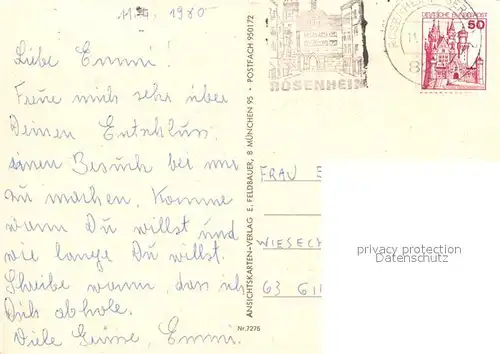 11.4. 1980
Liebe Emmi!
Freue mich sehr über
Deinen Entschluss,
einen Besuch bei mir
zu machen. Komme
wann Du willst und
wie lange Du willst.
Schreibe wann, dass ich
Dich abhole.
Viele Grüsse, Emmi.
ANSICHTSKARTEN-VERLAG E. FELDBAUER, 8 MÜNCHEN 95 · POSTFACH 950172
Nr. 7276
ROSENHEIM
11.
8
DEUTSCHE BUNDESPOST
50
FRAU
WIESECK
63 GI
privacy protection
Datenschutz